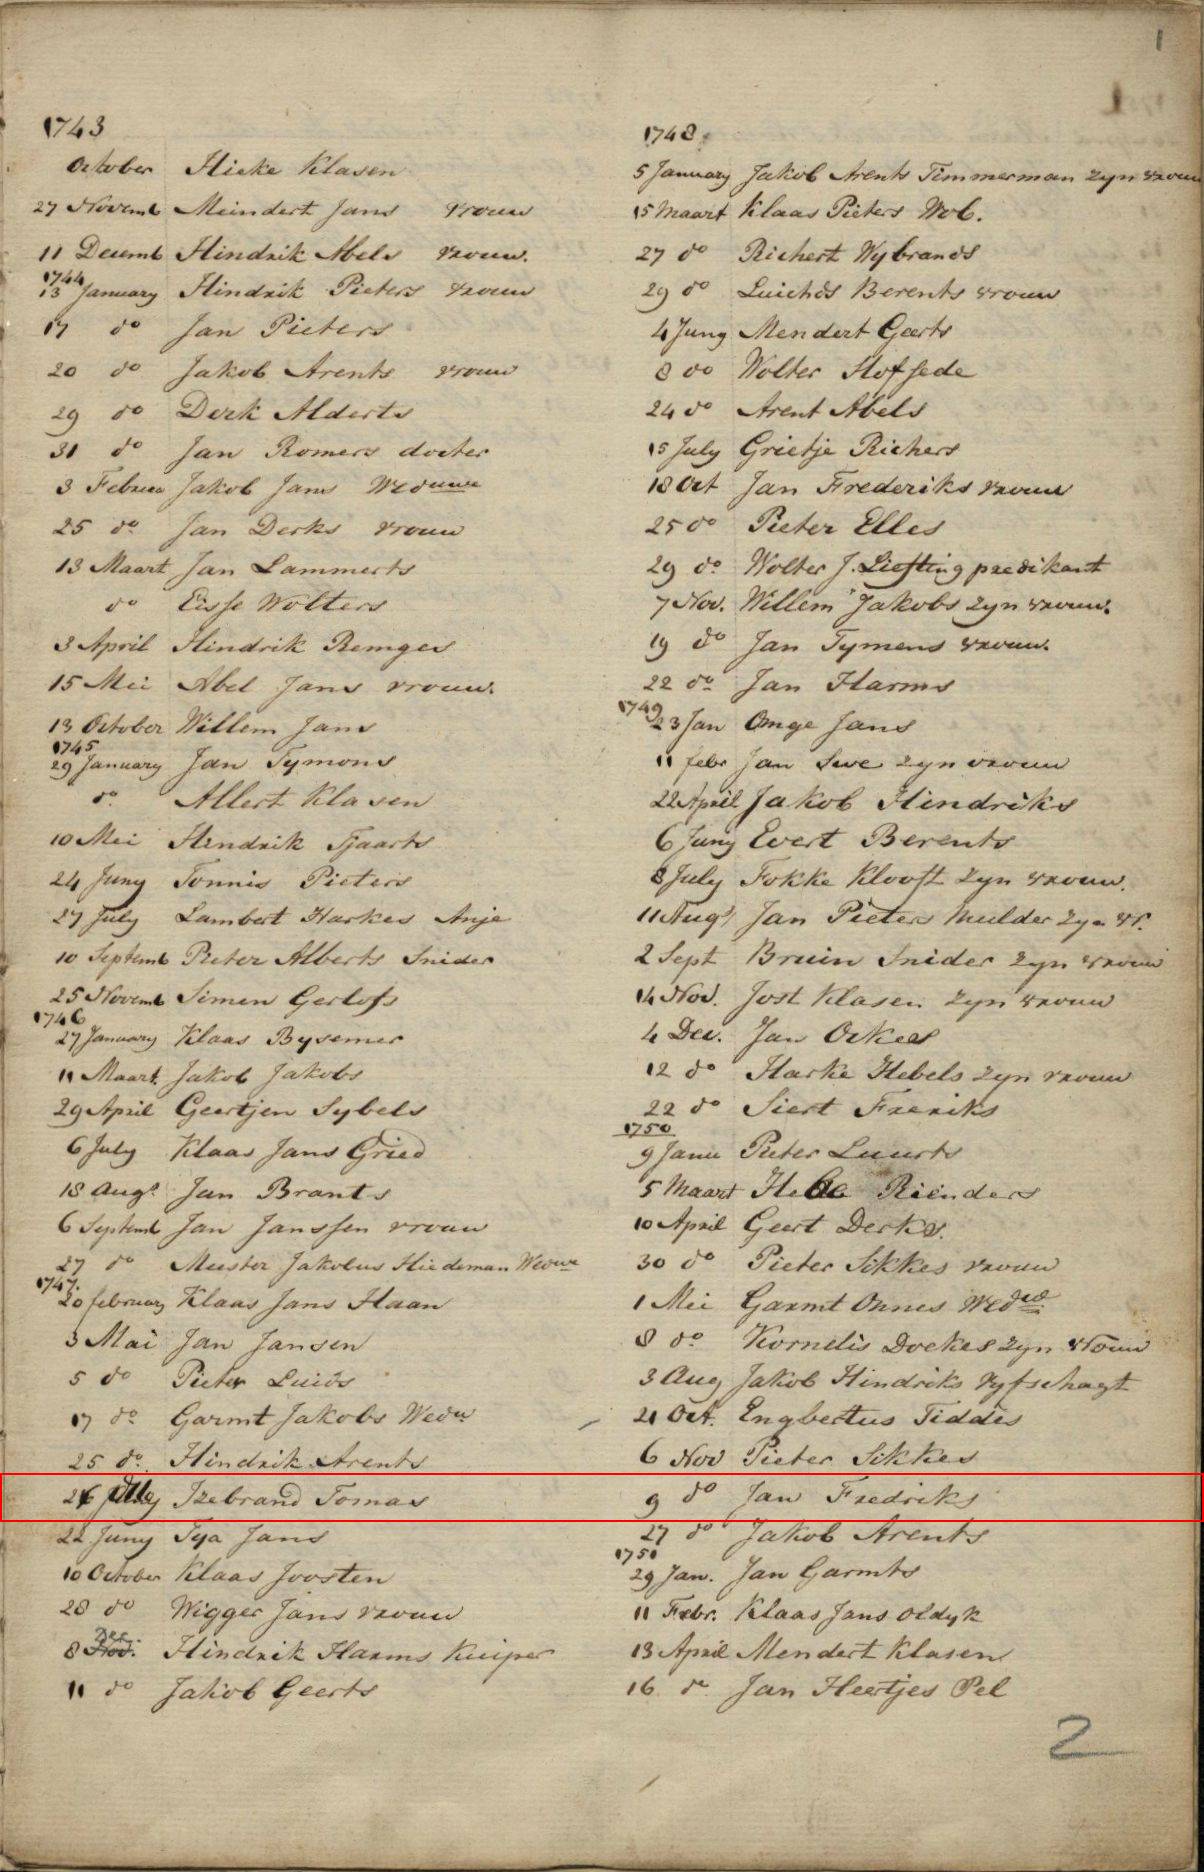 1
1743
October Hieke Klasen
27 Novemb Meindert Jans vrouw
11 Decemb Hindrik Abels vrouw.
1744
13 January Hindrik Pieters vrouw
17 do Jan Pieters
20 do Jakob Arents vrouw
29 do Derk Alderts
31 do Jan Romers docter
3 Februa Jakob Jans Weduwe
25 do Jan Derks vrouw
13 Maart Jan Lammerts
do Eisse Wolters
3 April Hindrik Remges
15 Mei Abel Jans vrouw.
13 October Willem Jans
1745
29 January Jan Tymons
do Allert Klasen
10 Mei Hindrik Tjaarts
24 Juny Tonnis Pieters
27 July Lambert Harkes Anje
10 Septemb Pieter Alberts Snider
25 Novemb Simen Gerlofs
1746
27 January Klaas Bysemer
11 Maart Jakob Jakobs
29 April Geertjen Sybels
6 July Klaas Jans Gried
18 Augs Jan Brants
6 Septemb Jan Janssen vrouw
27 do Meester Jakobus Hiedeman Wedwe
1747.
20 february Klaas Jans Haan
3 Mai Jan Jansen
5 do Pieter Luids
17 do Garmt Jakobs Wedw
25 do. Hindrik Arents
26 Izebrand Tomas
22 Juny Tya Jans
10 October Klaas Joosten
28 do Wigger Jans vrouw
8 Dec. Hindrik Harms Kuiper
11 do Jakob Geerts
1748.
5 January Jakob Arents Timmerman zyn vrouw
15 Maart Klaas Pieters Wob.
27 do Richert Wybrands
29 do Luichds Berents vrouw
4 Juny Mendert Geerts
8 do Wolter Hofsede
24 do Arent Abels
15 July Grietje Richers
18 Oct Jan Frederiks vrouw
25 do Pieter Elles
29 do Wolter J. Liefting predikant
7 Nov. Willem Jakobs zyn vrouw.
19 do Jan Tymens vrouw.
22 do Jan Harms
1749
23 Jan Omge Jans
11 febr Jan Swe zyn vrouw
22 April Jakob Hindriks
6 Juny Evert Berents
8 July Fokke Klooft zyn vrouw.
11 Augs Jan Pieters Mulder zyn vr.
2 Sept Bruin Snider zyn vrouw
14 Nov. Jost Klasen zyn vrouw
4 Dec. Jan Orkes
12 do Harke Hebels zyn vrouw
22 do Siert Freriks
1750
9 Janu Pieter Luurts
5 Maart Rienders
10 April Geert Derks.
30 do Pieter Sikkes vrouw
1 Mei Garmt Onnes Wedwe
8 do Kornelis Doekes zyn vrouw
3 Aug Jakob Hindriks Vyfschagt
21 Oct. Engbertus Tiddes
6 Nov Pieter Sikkes
9 do Jan Fredriks
27 do Jakob Arents
1751
29 Jan. Jan Garmts
11 Febr. Klaas Jans Oldyk
13 April Mendert Klasen
16 do Jan Heertjes Pel
2